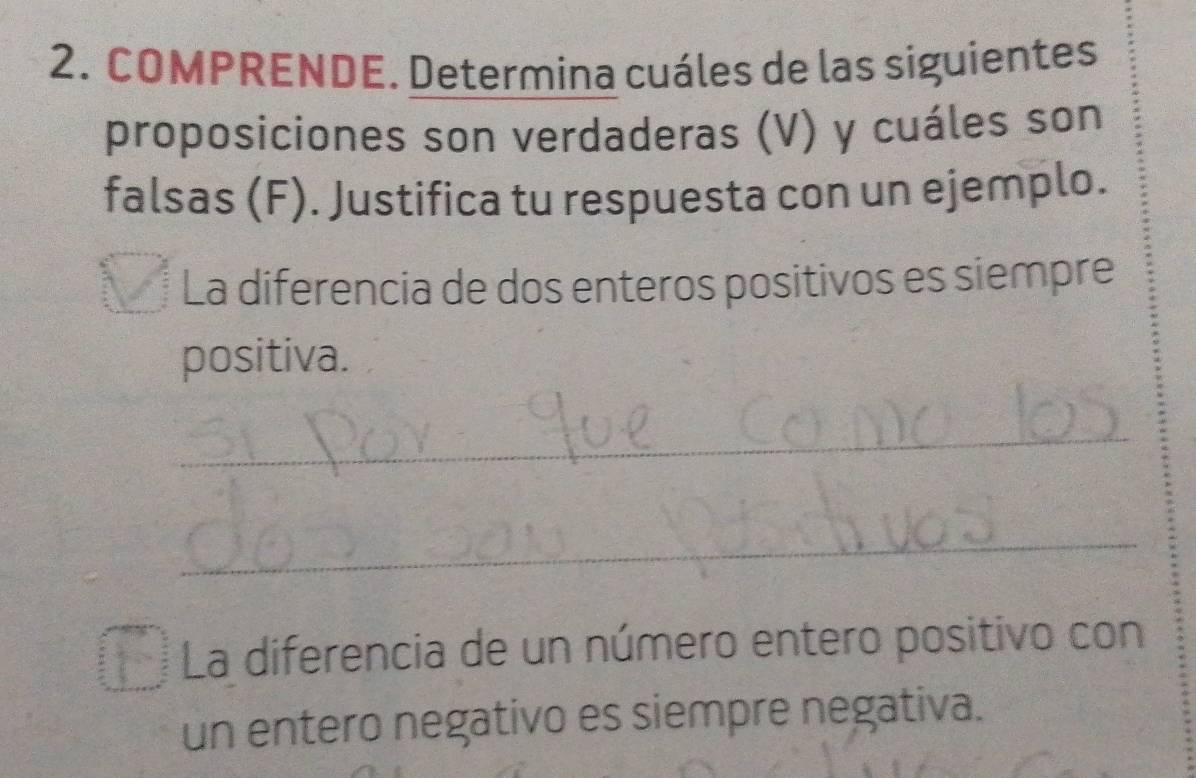 2. COMPRENDE. Determina cuáles de las siguientes
proposiciones son verdaderas (V) y cuáles son
falsas (F). Justifica tu respuesta con un ejemplo.
V La diferencia de dos enteros positivos es siempre
positiva.
si por que como los
dos son
F La diferencia de un número entero positivo con
un entero negativo es siempre negativa.